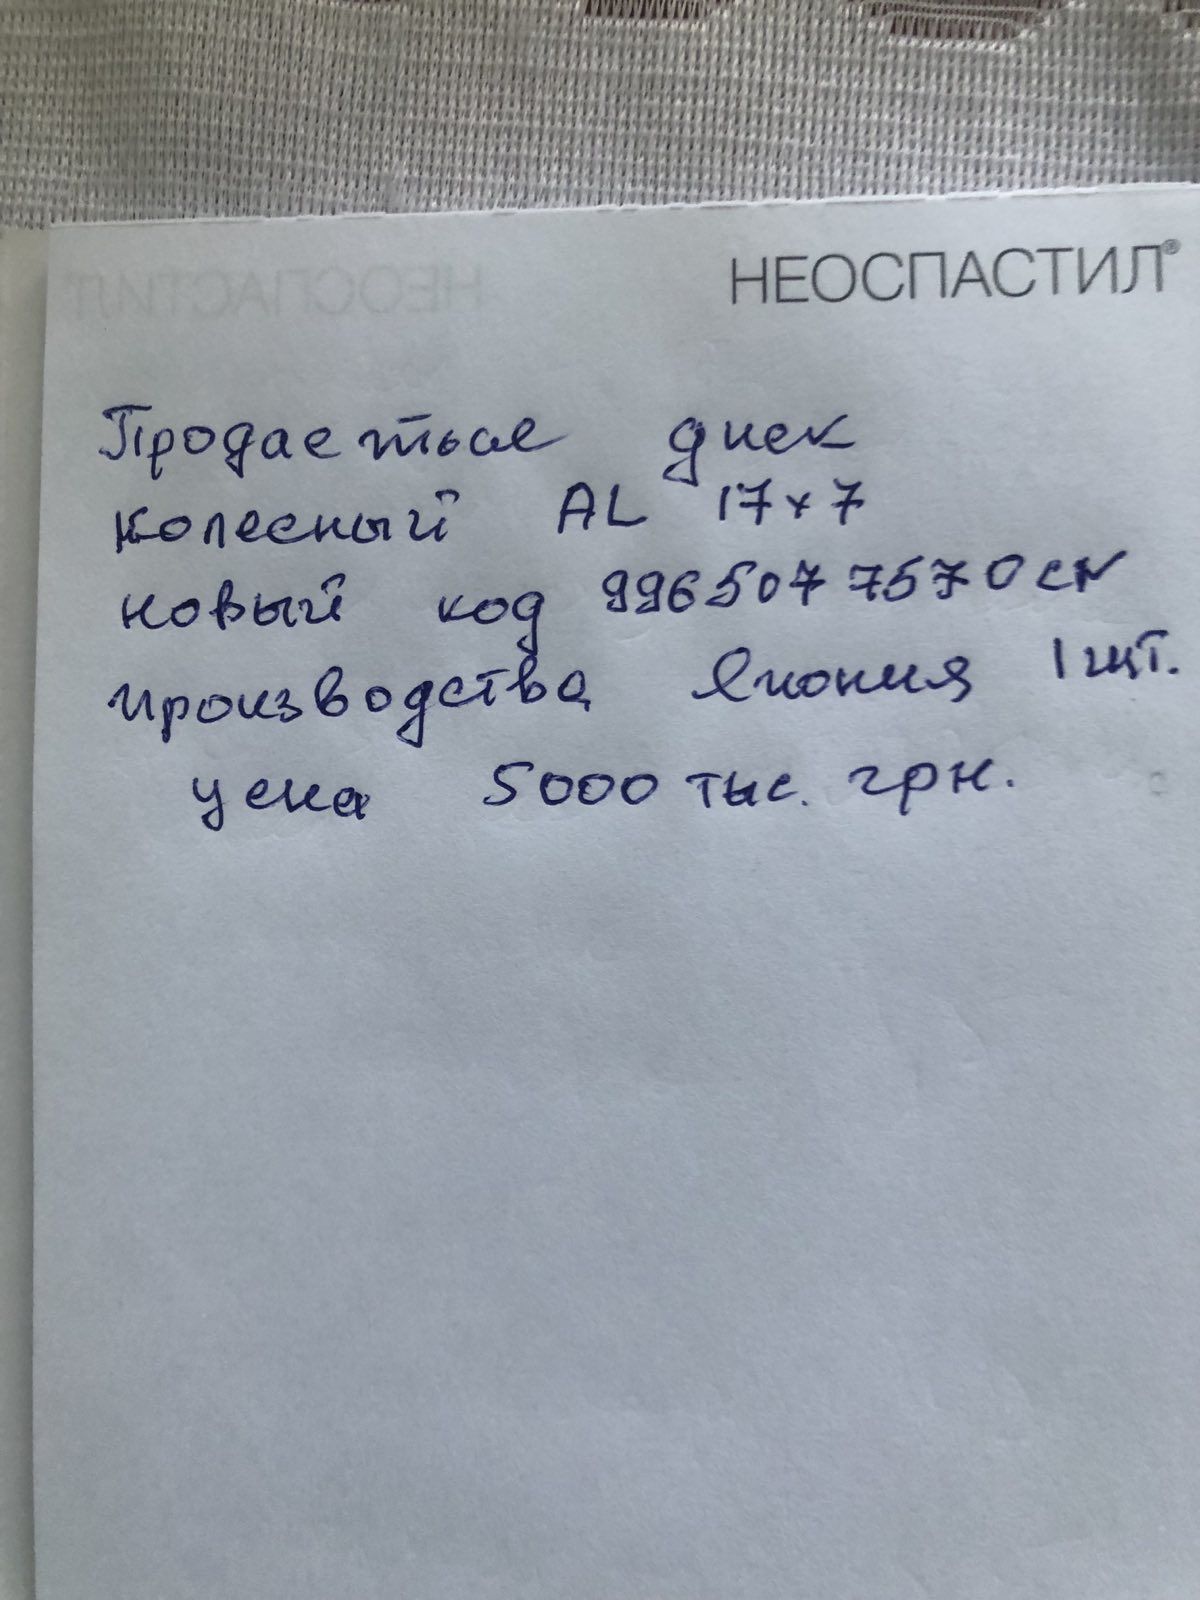 НЕОСПАСТИЛ®
Продаеться диск
колесный AL 17x7
новый код 9965077570CN
производства Япония 1 шт.
цена 5000 тыс. грн.